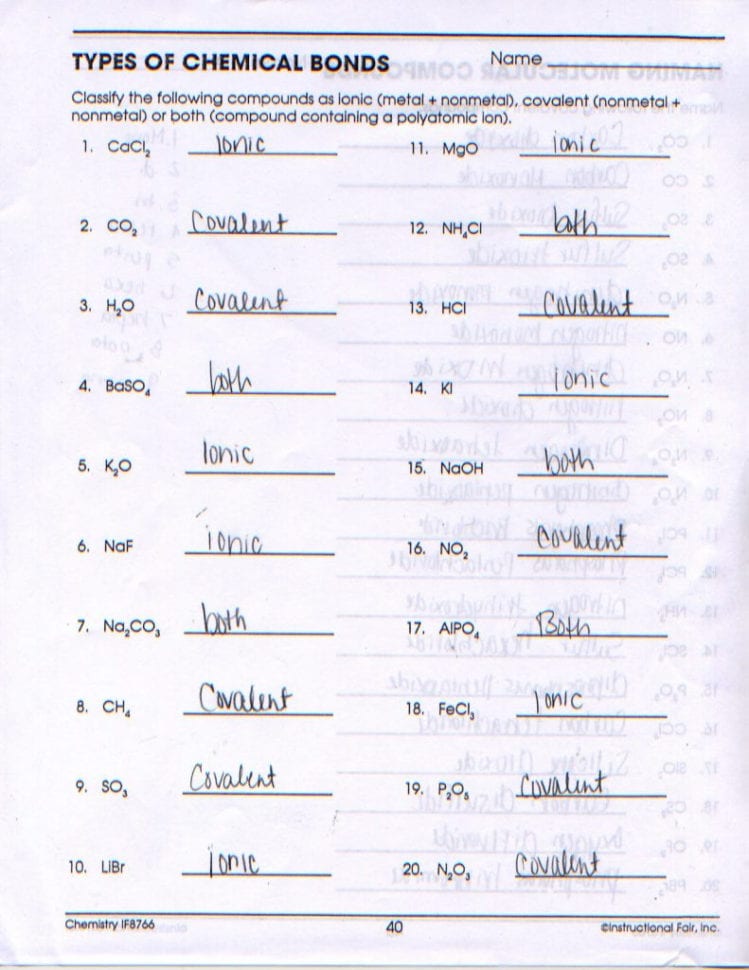 TYPES OF CHEMICAL BONDS Name
Classify the following compounds as ionic (metal + nonmetal), covalent (nonmetal +
nonmetal) or both (compound containing a polyatomic ion).
1. CaCl₂ Ionic
2. CO₂ Covalent
3. H₂O Covalent
4. BaSO₄ both
5. K₂O Ionic
6. NaF ionic
7. Na₂CO₃ both
8. CH₄ Covalent
9. SO₃ Covalent
10. LiBr ionic
11. MgO ionic
12. NH₄Cl both
13. HCl Covalent
14. KI Ionic
15. NaOH both
16. NO₂ Covalent
17. AlPO₄ Both
18. FeCl₃ Ionic
19. P₂O₅ Covalent
20. N₂O₃ Covalent
Chemistry IF8766 40 ©Instructional Fair, Inc.